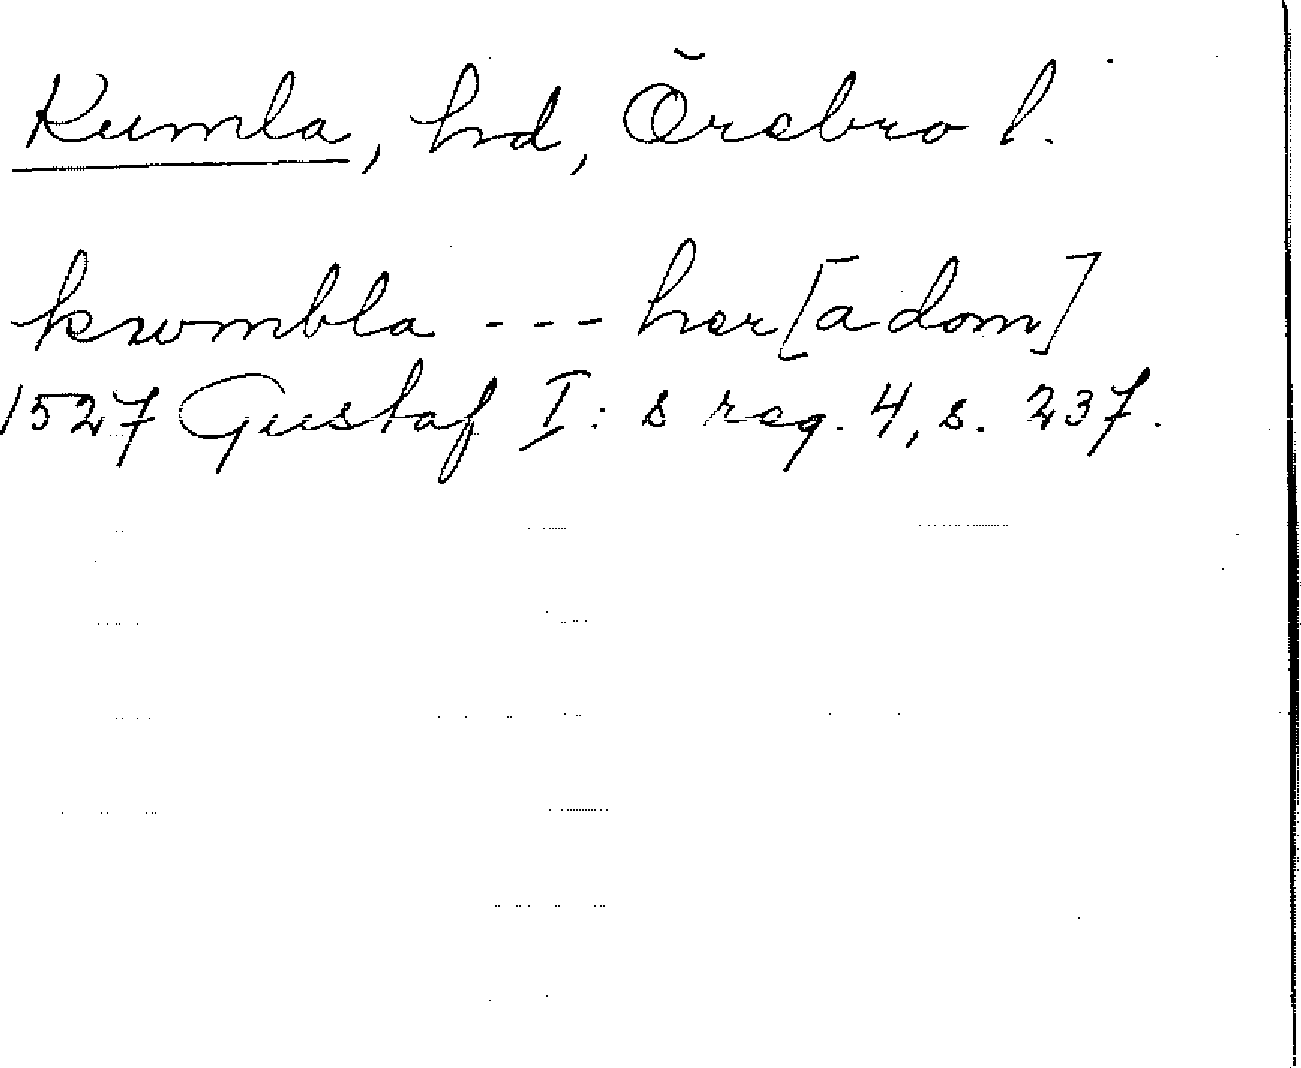 Kumla, hd, Örebro l.
kwmbla --- her[adom]
1527 Gustaf I:s reg. 4, s. 237.